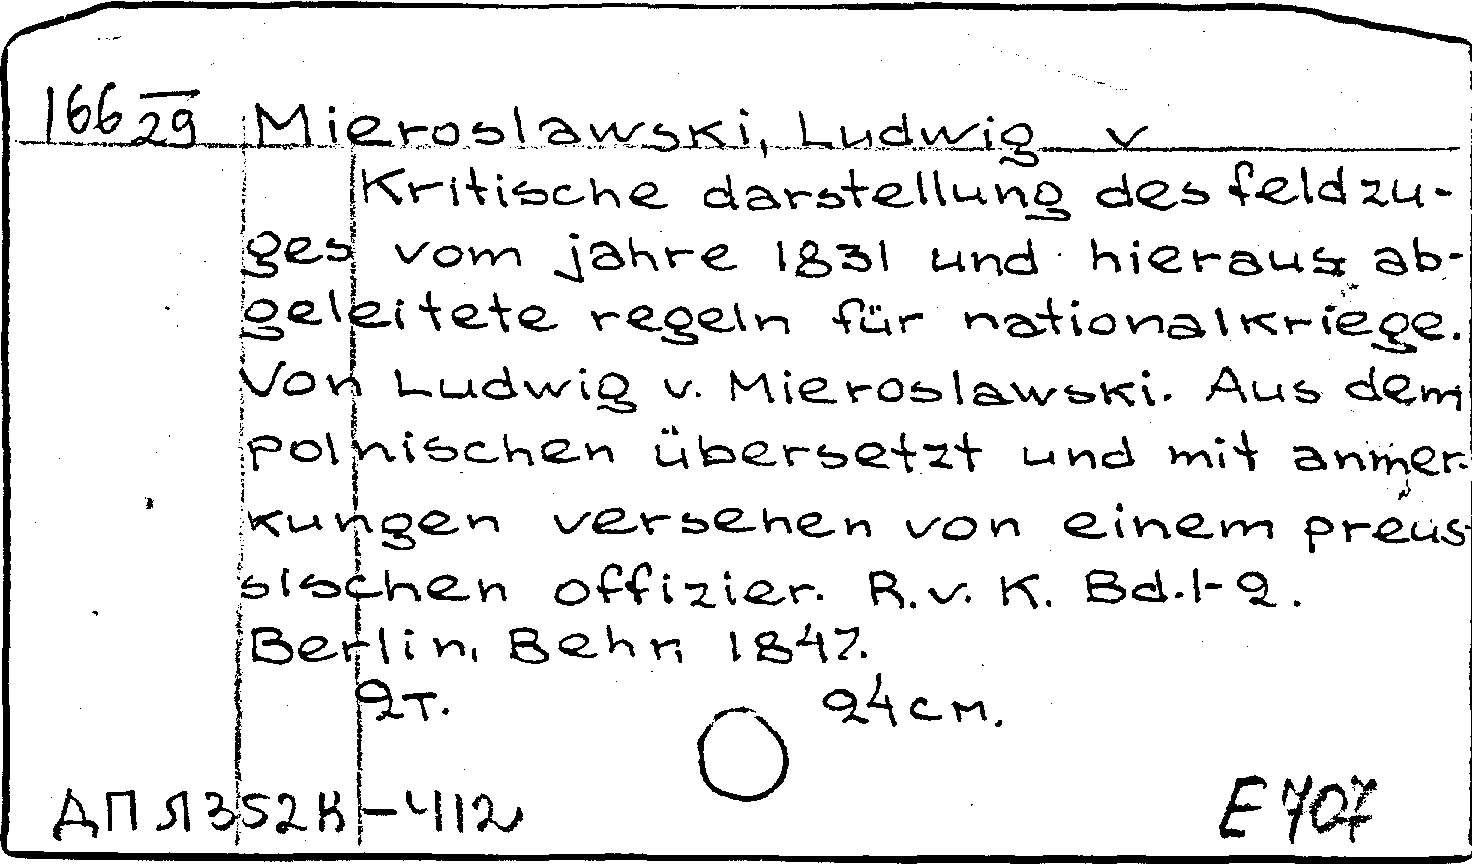 166 29 Mieroslawski, Ludwig v
Kritische darstellung des feldzu-
ges vom jahre 1831 und hieraus ab-
geleitete regeln für nationalkriege.
Von Ludwig v. Mieroslawski. Aus dem
polnischen übersetzt und mit anmer-
kungen versehen von einem preus-
sischen offizier. R. v. K. Bd. 1-2.
Berlin, Behr, 1847.
2т. 24 см.
ДП Л352К-412 E 707